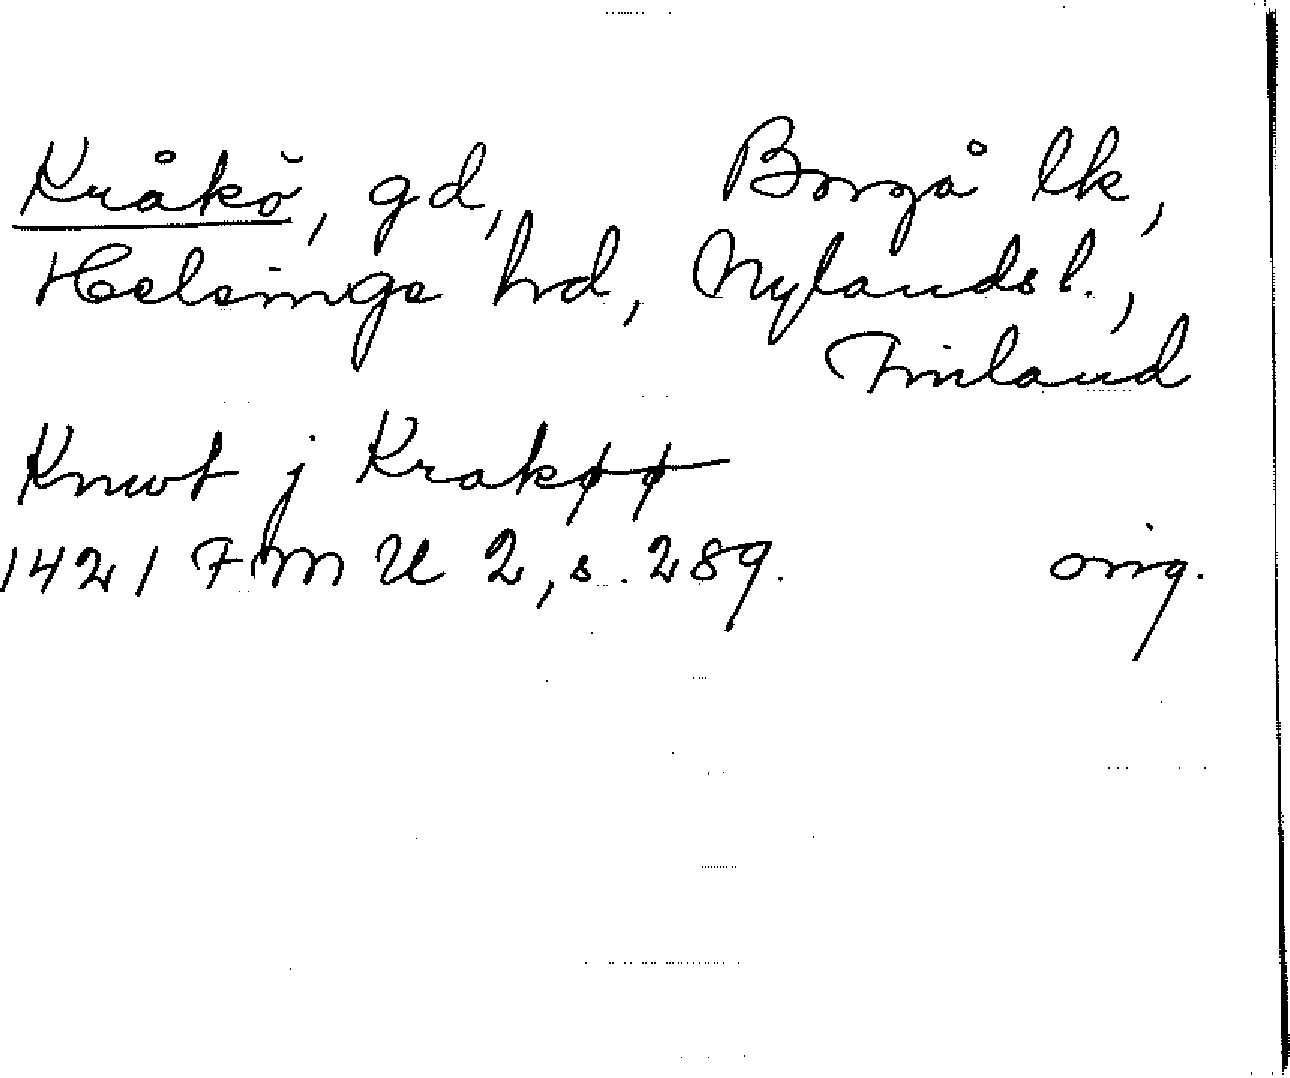 Kråkö, gd, Borgå lk,
Helsinge hrd, Nylands l.,
Finland
Knwt j Krakøø
1421 FMU 2, s. 289. orig.